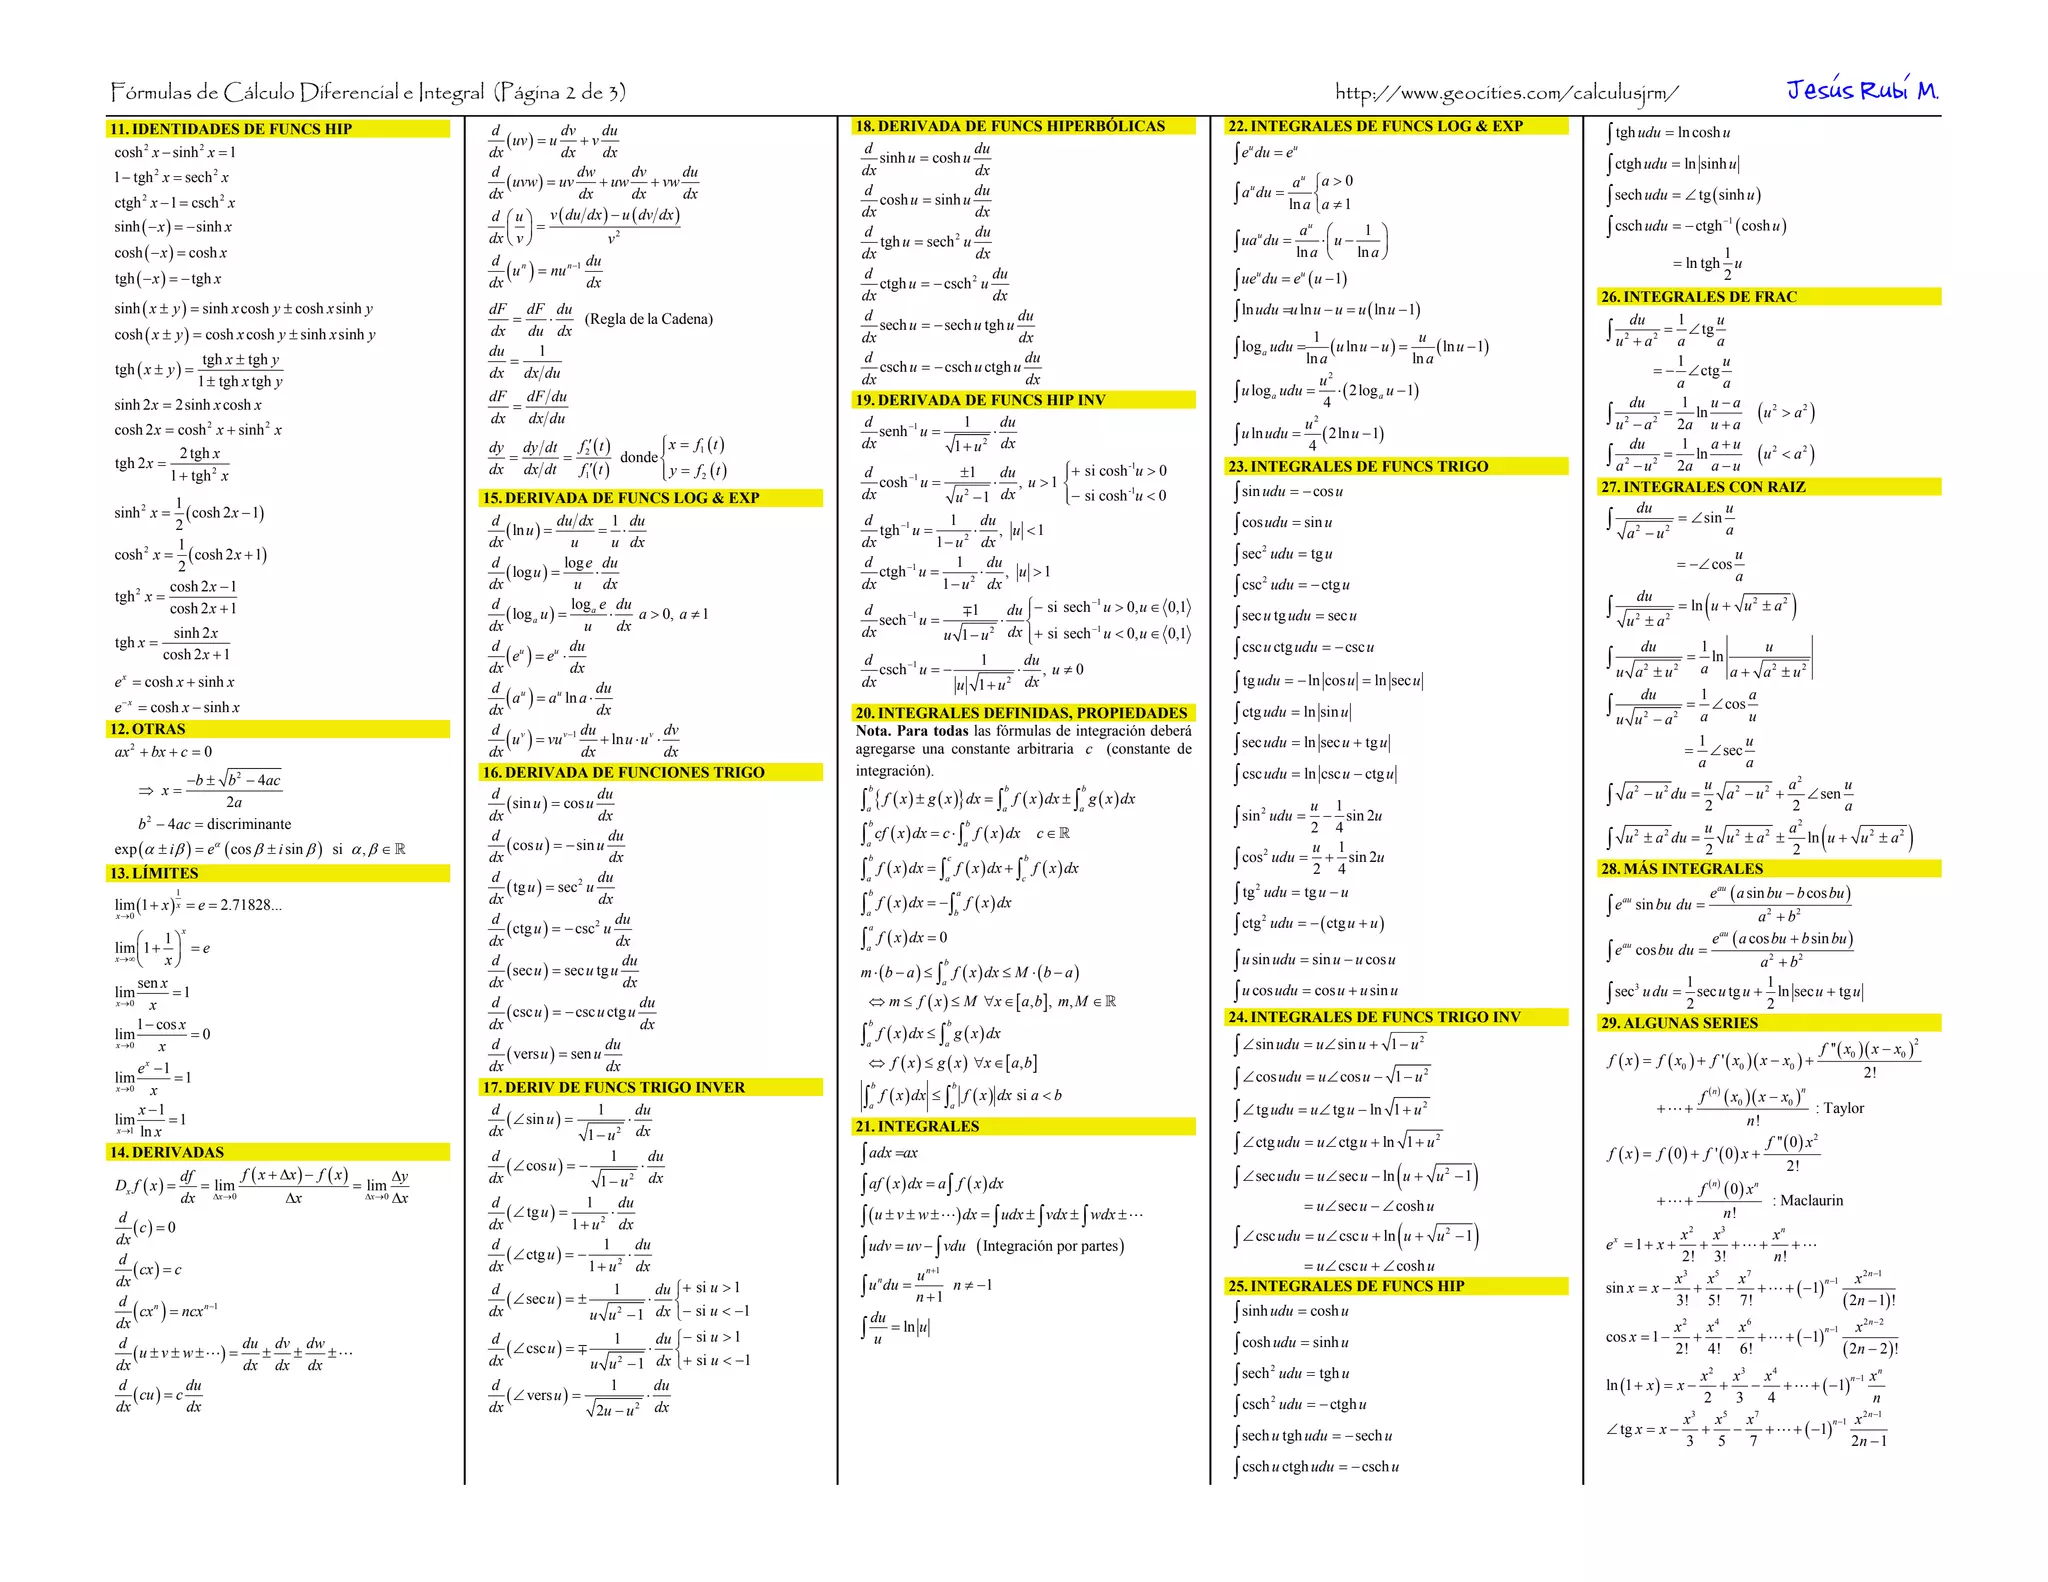 Fórmulas de Cálculo Diferencial e Integral (Página 2 de 3) http://www.geocities.com/calculusjrm/ Jesús Rubí M.
11. IDENTIDADES DE FUNCS HIP
cosh² x − sinh² x = 1
1 − tgh² x = sech² x
ctgh² x − 1 = csch² x
sinh(−x) = −sinh x
cosh(−x) = cosh x
tgh(−x) = −tgh x
sinh(x ± y) = sinh x cosh y ± cosh x sinh y
cosh(x ± y) = cosh x cosh y ± sinh x sinh y
tgh(x ± y) = (tgh x ± tgh y)/(1 ± tgh x tgh y)
sinh 2x = 2 sinh x cosh x
cosh 2x = cosh² x + sinh² x
tgh 2x = (2 tgh x)/(1 + tgh² x)
sinh² x = 1/2 (cosh 2x − 1)
cosh² x = 1/2 (cosh 2x + 1)
tgh² x = (cosh 2x − 1)/(cosh 2x + 1)
tgh x = (sinh 2x)/(cosh 2x + 1)
e^x = cosh x + sinh x
e^−x = cosh x − sinh x
12. OTRAS
ax² + bx + c = 0
⇒ x = (−b ± √(b² − 4ac))/(2a)
b² − 4ac = discriminante
exp(α ± iβ) = e^α (cos β ± i sin β) si α, β ∈ ℝ
13. LÍMITES
lim x→0 (1 + x)^(1/x) = e = 2.71828...
lim x→∞ (1 + 1/x)^x = e
lim x→0 (sen x)/x = 1
lim x→0 (1 − cos x)/x = 0
lim x→0 (e^x − 1)/x = 1
lim x→1 (x − 1)/(ln x) = 1
14. DERIVADAS
D_x f(x) = df/dx = lim Δx→0 (f(x + Δx) − f(x))/Δx = lim Δx→0 Δy/Δx
d/dx (c) = 0
d/dx (cx) = c
d/dx (cx^n) = ncx^(n−1)
d/dx (u ± v ± w ± ⋯) = du/dx ± dv/dx ± dw/dx ± ⋯
d/dx (cu) = c du/dx
d/dx (uv) = u dv/dx + v du/dx
d/dx (uvw) = uv dw/dx + uw dv/dx + vw du/dx
d/dx (u/v) = (v(du/dx) − u(dv/dx))/v²
d/dx (u^n) = nu^(n−1) du/dx
dF/dx = dF/du · du/dx (Regla de la Cadena)
du/dx = 1/(dx/du)
dF/dx = (dF/du)/(dx/du)
dy/dx = (dy/dt)/(dx/dt) = f₂′(t)/f₁′(t) donde { x = f₁(t) y = f₂(t)
15. DERIVADA DE FUNCS LOG & EXP
d/dx (ln u) = (du/dx)/u = 1/u · du/dx
d/dx (log u) = (log e)/u · du/dx
d/dx (log_a u) = (log_a e)/u · du/dx a > 0, a ≠ 1
d/dx (e^u) = e^u · du/dx
d/dx (a^u) = a^u ln a · du/dx
d/dx (u^v) = vu^(v−1) du/dx + ln u · u^v · dv/dx
16. DERIVADA DE FUNCIONES TRIGO
d/dx (sin u) = cos u du/dx
d/dx (cos u) = −sin u du/dx
d/dx (tg u) = sec² u du/dx
d/dx (ctg u) = −csc² u du/dx
d/dx (sec u) = sec u tg u du/dx
d/dx (csc u) = −csc u ctg u du/dx
d/dx (vers u) = sen u du/dx
17. DERIV DE FUNCS TRIGO INVER
d/dx (∠sin u) = 1/√(1 − u²) · du/dx
d/dx (∠cos u) = −1/√(1 − u²) · du/dx
d/dx (∠tg u) = 1/(1 + u²) · du/dx
d/dx (∠ctg u) = −1/(1 + u²) · du/dx
d/dx (∠sec u) = ± 1/(u√(u² − 1)) · du/dx { + si u > 1 − si u < −1
d/dx (∠csc u) = ∓ 1/(u√(u² − 1)) · du/dx { − si u > 1 + si u < −1
d/dx (∠vers u) = 1/√(2u − u²) · du/dx
18. DERIVADA DE FUNCS HIPERBÓLICAS
d/dx sinh u = cosh u du/dx
d/dx cosh u = sinh u du/dx
d/dx tgh u = sech² u du/dx
d/dx ctgh u = −csch² u du/dx
d/dx sech u = −sech u tgh u du/dx
d/dx csch u = −csch u ctgh u du/dx
19. DERIVADA DE FUNCS HIP INV
d/dx senh⁻¹ u = 1/√(1 + u²) · du/dx
d/dx cosh⁻¹ u = ±1/√(u² − 1) · du/dx, u > 1 { + si cosh⁻¹ u > 0 − si cosh⁻¹ u < 0
d/dx tgh⁻¹ u = 1/(1 − u²) · du/dx, |u| < 1
d/dx ctgh⁻¹ u = 1/(1 − u²) · du/dx, |u| > 1
d/dx sech⁻¹ u = ∓1/(u√(1 − u²)) · du/dx { − si sech⁻¹ u > 0, u ∈ ⟨0,1⟩ + si sech⁻¹ u < 0, u ∈ ⟨0,1⟩
d/dx csch⁻¹ u = −1/(|u|√(1 + u²)) · du/dx, u ≠ 0
20. INTEGRALES DEFINIDAS, PROPIEDADES
Nota. Para todas las fórmulas de integración deberá
agregarse una constante arbitraria c (constante de
integración).
∫_a^b {f(x) ± g(x)} dx = ∫_a^b f(x) dx ± ∫_a^b g(x) dx
∫_a^b cf(x) dx = c · ∫_a^b f(x) dx c ∈ ℝ
∫_a^b f(x) dx = ∫_a^c f(x) dx + ∫_c^b f(x) dx
∫_a^b f(x) dx = −∫_b^a f(x) dx
∫_a^a f(x) dx = 0
m · (b − a) ≤ ∫_a^b f(x) dx ≤ M · (b − a)
⇔ m ≤ f(x) ≤ M ∀x ∈ [a,b], m, M ∈ ℝ
∫_a^b f(x) dx ≤ ∫_a^b g(x) dx
⇔ f(x) ≤ g(x) ∀x ∈ [a,b]
|∫_a^b f(x) dx| ≤ ∫_a^b |f(x)| dx si a < b
21. INTEGRALES
∫ adx = ax
∫ af(x) dx = a∫ f(x) dx
∫ (u ± v ± w ± ⋯) dx = ∫ udx ± ∫ vdx ± ∫ wdx ± ⋯
∫ udv = uv − ∫ vdu (Integración por partes)
∫ u^n du = u^(n+1)/(n + 1) n ≠ −1
∫ du/u = ln |u|
22. INTEGRALES DE FUNCS LOG & EXP
∫ e^u du = e^u
∫ a^u du = a^u/ln a { a > 0 a ≠ 1
∫ ua^u du = a^u/ln a · (u − 1/ln a)
∫ ue^u du = e^u (u − 1)
∫ ln udu = u ln u − u = u(ln u − 1)
∫ log_a udu = 1/ln a (u ln u − u) = u/ln a (ln u − 1)
∫ u log_a udu = u²/4 · (2 log_a u − 1)
∫ u ln udu = u²/4 (2 ln u − 1)
23. INTEGRALES DE FUNCS TRIGO
∫ sin udu = −cos u
∫ cos udu = sin u
∫ sec² udu = tg u
∫ csc² udu = −ctg u
∫ sec u tg udu = sec u
∫ csc u ctg udu = −csc u
∫ tg udu = −ln |cos u| = ln |sec u|
∫ ctg udu = ln |sin u|
∫ sec udu = ln |sec u + tg u|
∫ csc udu = ln |csc u − ctg u|
∫ sin² udu = u/2 − 1/4 sin 2u
∫ cos² udu = u/2 + 1/4 sin 2u
∫ tg² udu = tg u − u
∫ ctg² udu = −(ctg u + u)
∫ u sin udu = sin u − u cos u
∫ u cos udu = cos u + u sin u
24. INTEGRALES DE FUNCS TRIGO INV
∫ ∠sin udu = u∠sin u + √(1 − u²)
∫ ∠cos udu = u∠cos u − √(1 − u²)
∫ ∠tg udu = u∠tg u − ln √(1 + u²)
∫ ∠ctg udu = u∠ctg u + ln √(1 + u²)
∫ ∠sec udu = u∠sec u − ln (u + √(u² − 1))
= u∠sec u − ∠cosh u
∫ ∠csc udu = u∠csc u + ln (u + √(u² − 1))
= u∠csc u + ∠cosh u
25. INTEGRALES DE FUNCS HIP
∫ sinh udu = cosh u
∫ cosh udu = sinh u
∫ sech² udu = tgh u
∫ csch² udu = −ctgh u
∫ sech u tgh udu = −sech u
∫ csch u ctgh udu = −csch u
∫ tgh udu = ln cosh u
∫ ctgh udu = ln |sinh u|
∫ sech udu = ∠tg (sinh u)
∫ csch udu = −ctgh⁻¹ (cosh u)
= ln tgh 1/2 u
26. INTEGRALES DE FRAC
∫ du/(u² + a²) = 1/a ∠tg u/a
= −1/a ∠ctg u/a
∫ du/(u² − a²) = 1/2a ln (u − a)/(u + a) (u² > a²)
∫ du/(a² − u²) = 1/2a ln (a + u)/(a − u) (u² < a²)
27. INTEGRALES CON RAIZ
∫ du/√(a² − u²) = ∠sin u/a
= −∠cos u/a
∫ du/√(u² ± a²) = ln (u + √(u² ± a²))
∫ du/(u√(a² ± u²)) = 1/a ln |u/(a + √(a² ± u²))|
∫ du/(u√(u² − a²)) = 1/a ∠cos a/u
= 1/a ∠sec u/a
∫ √(a² − u²) du = u/2 √(a² − u²) + a²/2 ∠sen u/a
∫ √(u² ± a²) du = u/2 √(u² ± a²) ± a²/2 ln (u + √(u² ± a²))
28. MÁS INTEGRALES
∫ e^(au) sin bu du = e^(au) (a sin bu − b cos bu)/(a² + b²)
∫ e^(au) cos bu du = e^(au) (a cos bu + b sin bu)/(a² + b²)
∫ sec³ u du = 1/2 sec u tg u + 1/2 ln |sec u + tg u|
29. ALGUNAS SERIES
f(x) = f(x₀) + f'(x₀)(x − x₀) + f''(x₀)(x − x₀)²/2!
+ ⋯ + f^(n)(x₀)(x − x₀)^n/n! : Taylor
f(x) = f(0) + f'(0)x + f''(0)x²/2!
+ ⋯ + f^(n)(0)x^n/n! : Maclaurin
e^x = 1 + x + x²/2! + x³/3! + ⋯ + x^n/n! + ⋯
sin x = x − x³/3! + x⁵/5! − x⁷/7! + ⋯ + (−1)^(n−1) x^(2n−1)/(2n − 1)!
cos x = 1 − x²/2! + x⁴/4! − x⁶/6! + ⋯ + (−1)^(n−1) x^(2n−2)/(2n − 2)!
ln(1 + x) = x − x²/2 + x³/3 − x⁴/4 + ⋯ + (−1)^(n−1) x^n/n
∠tg x = x − x³/3 + x⁵/5 − x⁷/7 + ⋯ + (−1)^(n−1) x^(2n−1)/(2n − 1)